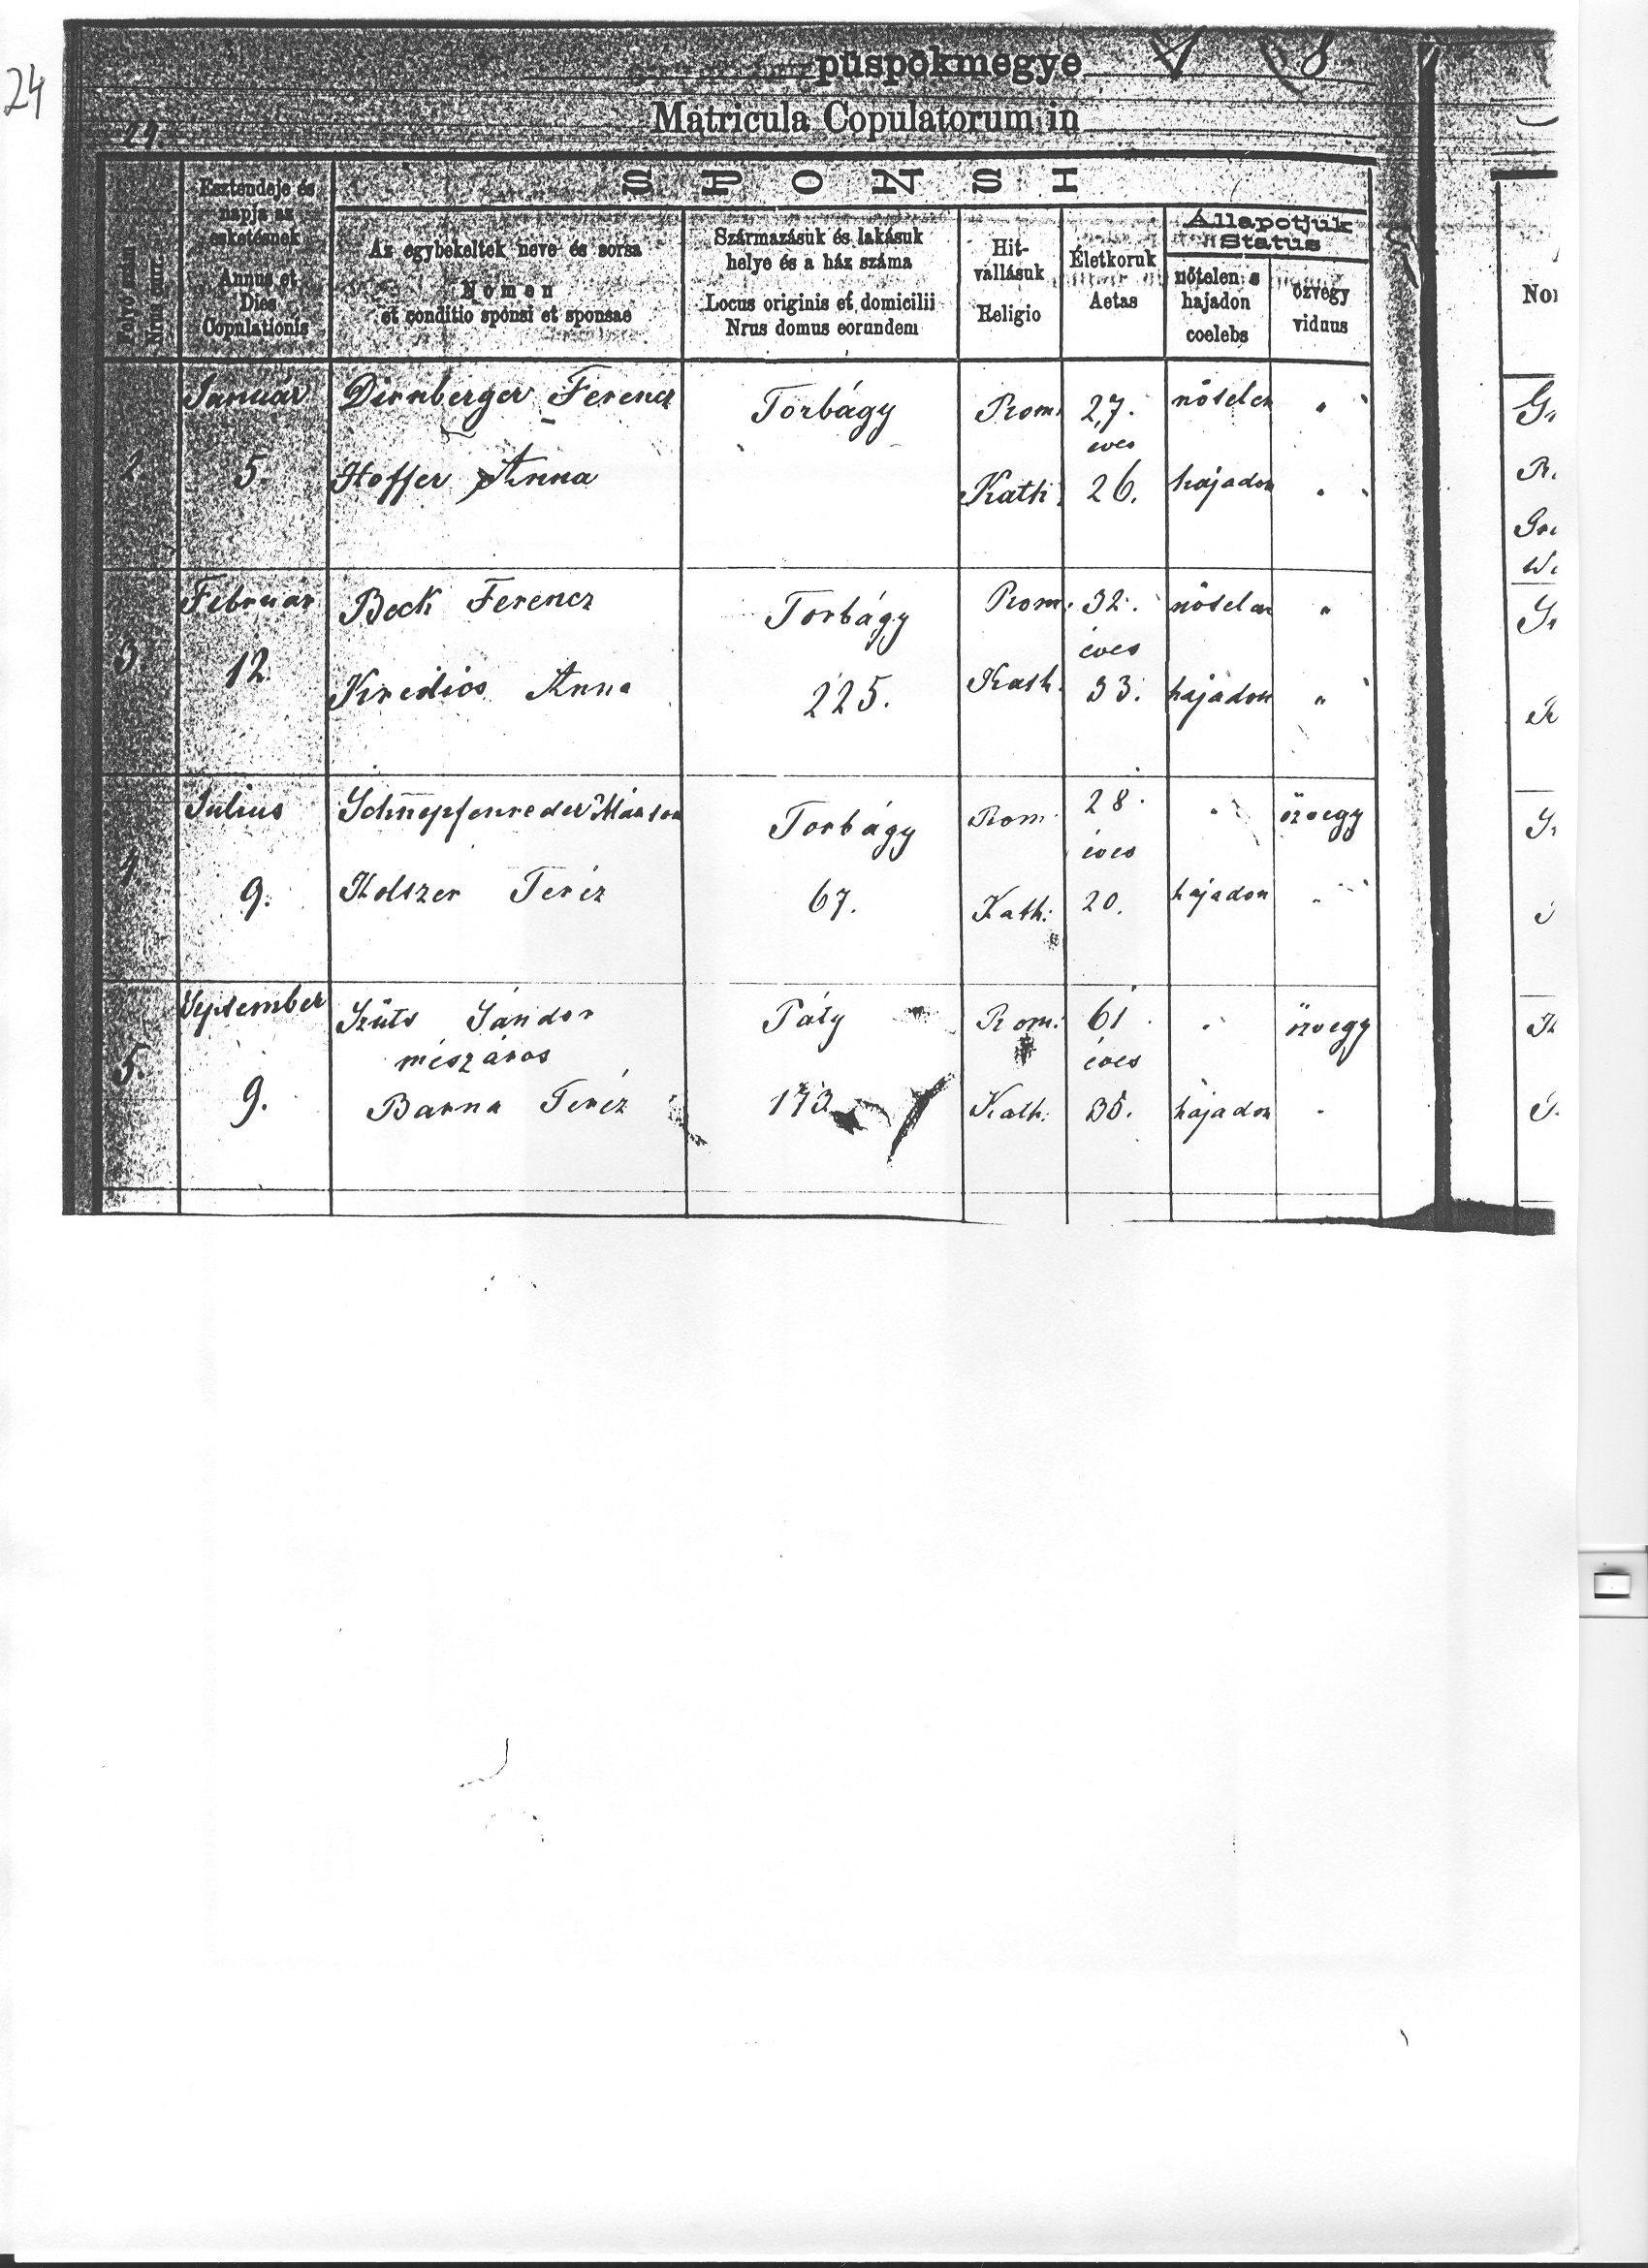 24
24.
püspökmegye
Matricula Copulatorum in
SPONSI
Folyó szám
Nrus curr.
Esztendeje és
napja az
esketésnek
Annus et
Dies
Copulationis
Az egybekeltek neve és sorsa
Nomen
et conditio sponsi et sponsae
Származásuk és lakásuk
helye és a ház száma
Locus originis et domicilii
Nrus domus eorundem
Hit-
vallásuk
Religio
Életkoruk
Aetas
Állapotjuk
Status
nőtelen s
hajadon
coelebs
özvegy
viduus
Január Dirnberger Ferencz Torbágy Rom. 27. nőtelen "
éves
5. Hoffer Anna Kath. 26. hajadon "
Február Beck Ferencz Torbágy Rom. 32. nőtelen "
éves
3. 12. Anna 225. Kath. 33. hajadon "
Julius Torbágy Rom. 28. " özvegy
éves
4 9. Holszer Teréz 67. Kath. 20. hajadon "
September Szűts Sándor Páty Rom. 61. " özvegy
mészáros éves
5. 9. Barna Teréz 173 Kath. 35. hajadon "